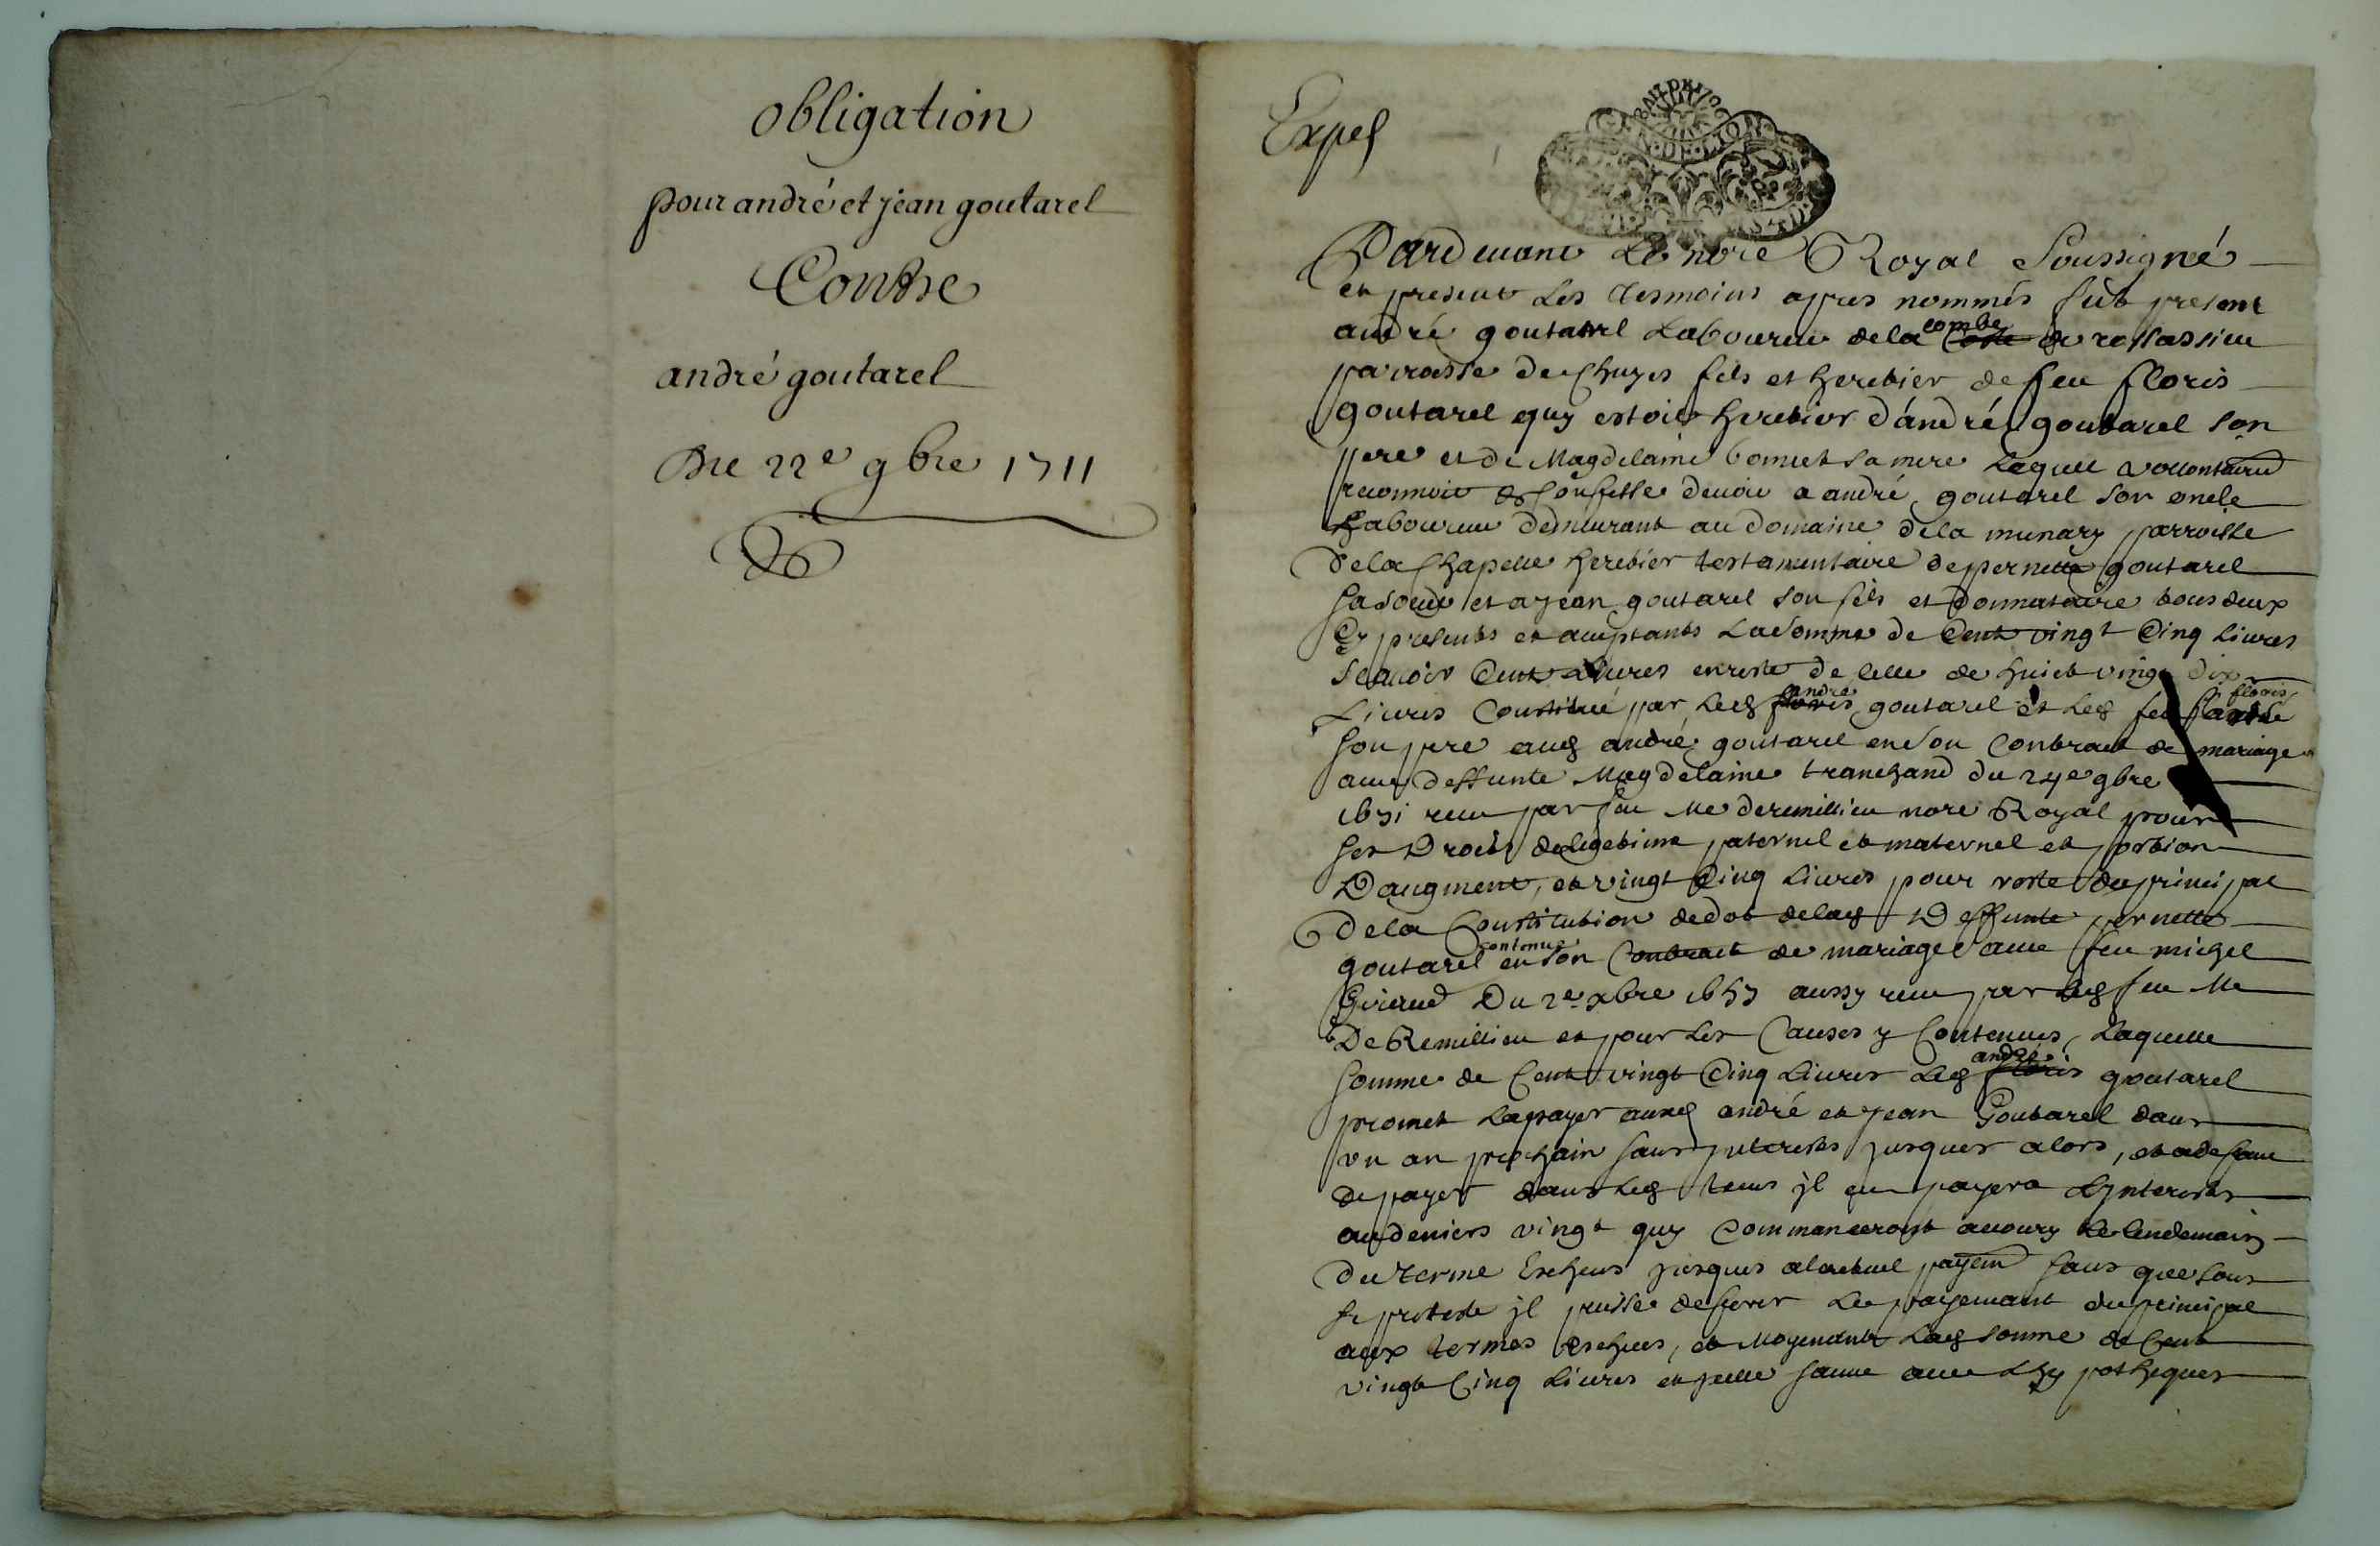 obligation
pour andré et jean goutarel
Contre
andré goutarel
Du 22e 9bre 1711
Expes
Pardevant Le nore Royal Soussigné
et present Les tesmoins apres nommés fut present
andré goutarel Laboureur de la combe de rossassieu
parroisse de Chuyes fils et heretier de feu floris
goutarel quy estoit heretier d'andré goutarel son
pere et de Magdelaine bonnet sa mere Lequel vollontaire
reconnoit et Confesse devoir a andré goutarel son oncle
Laboureur demeurant au domaine de la munary parroisse
de la Chapelle heretier testamentaire de pernette goutarel
sa soeur et a jean goutarel son fils et donnataire tous deux
Cy presents et acceptants La Somme de Cent vingt Cinq Livres
Scavoir Cent Livres en reste de celle de huict vingt dix
Livres Constitué par Led andré goutarel et Led feu floris
son pere aud andré goutarel en son Contract de mariage
avec deffunte Magdelaine tranchand du 24e 9bre
1671 receu par feu Me deremillieu nore Royal pour
ses Droits de Legetime paternel et maternel et portion
D'augment, et vingt Cinq Livres pour reste du principal
de la Constitution de dot de lad Deffunte pernette
goutarel contenue en son Contract de mariage avec feu michel
Giraud Du 2e xbre 1657 aussy receu par led feu Me
De Remillieu et pour Les Causes y Contenues, Laquelle
somme de Cent vingt Cinq Livres Led andré goutarel
promet La payer auxd andré et jean Goutarel dans
un an prochain sans jnterests jusques alors, et a defaut
de payer dans Led tems jl en payera L'jnterests
au deniers vingt quy Commanceront a courry Le lendemain
du terme Escheus jusques a l'actuel payem sans que sous
ce pretexte jl puisse deferer Le payemant du principal
aux termes escheus, et Moyenant Lad somme de Cent
vingt Cinq Livres et jcelle sauve avec L'hypotheques